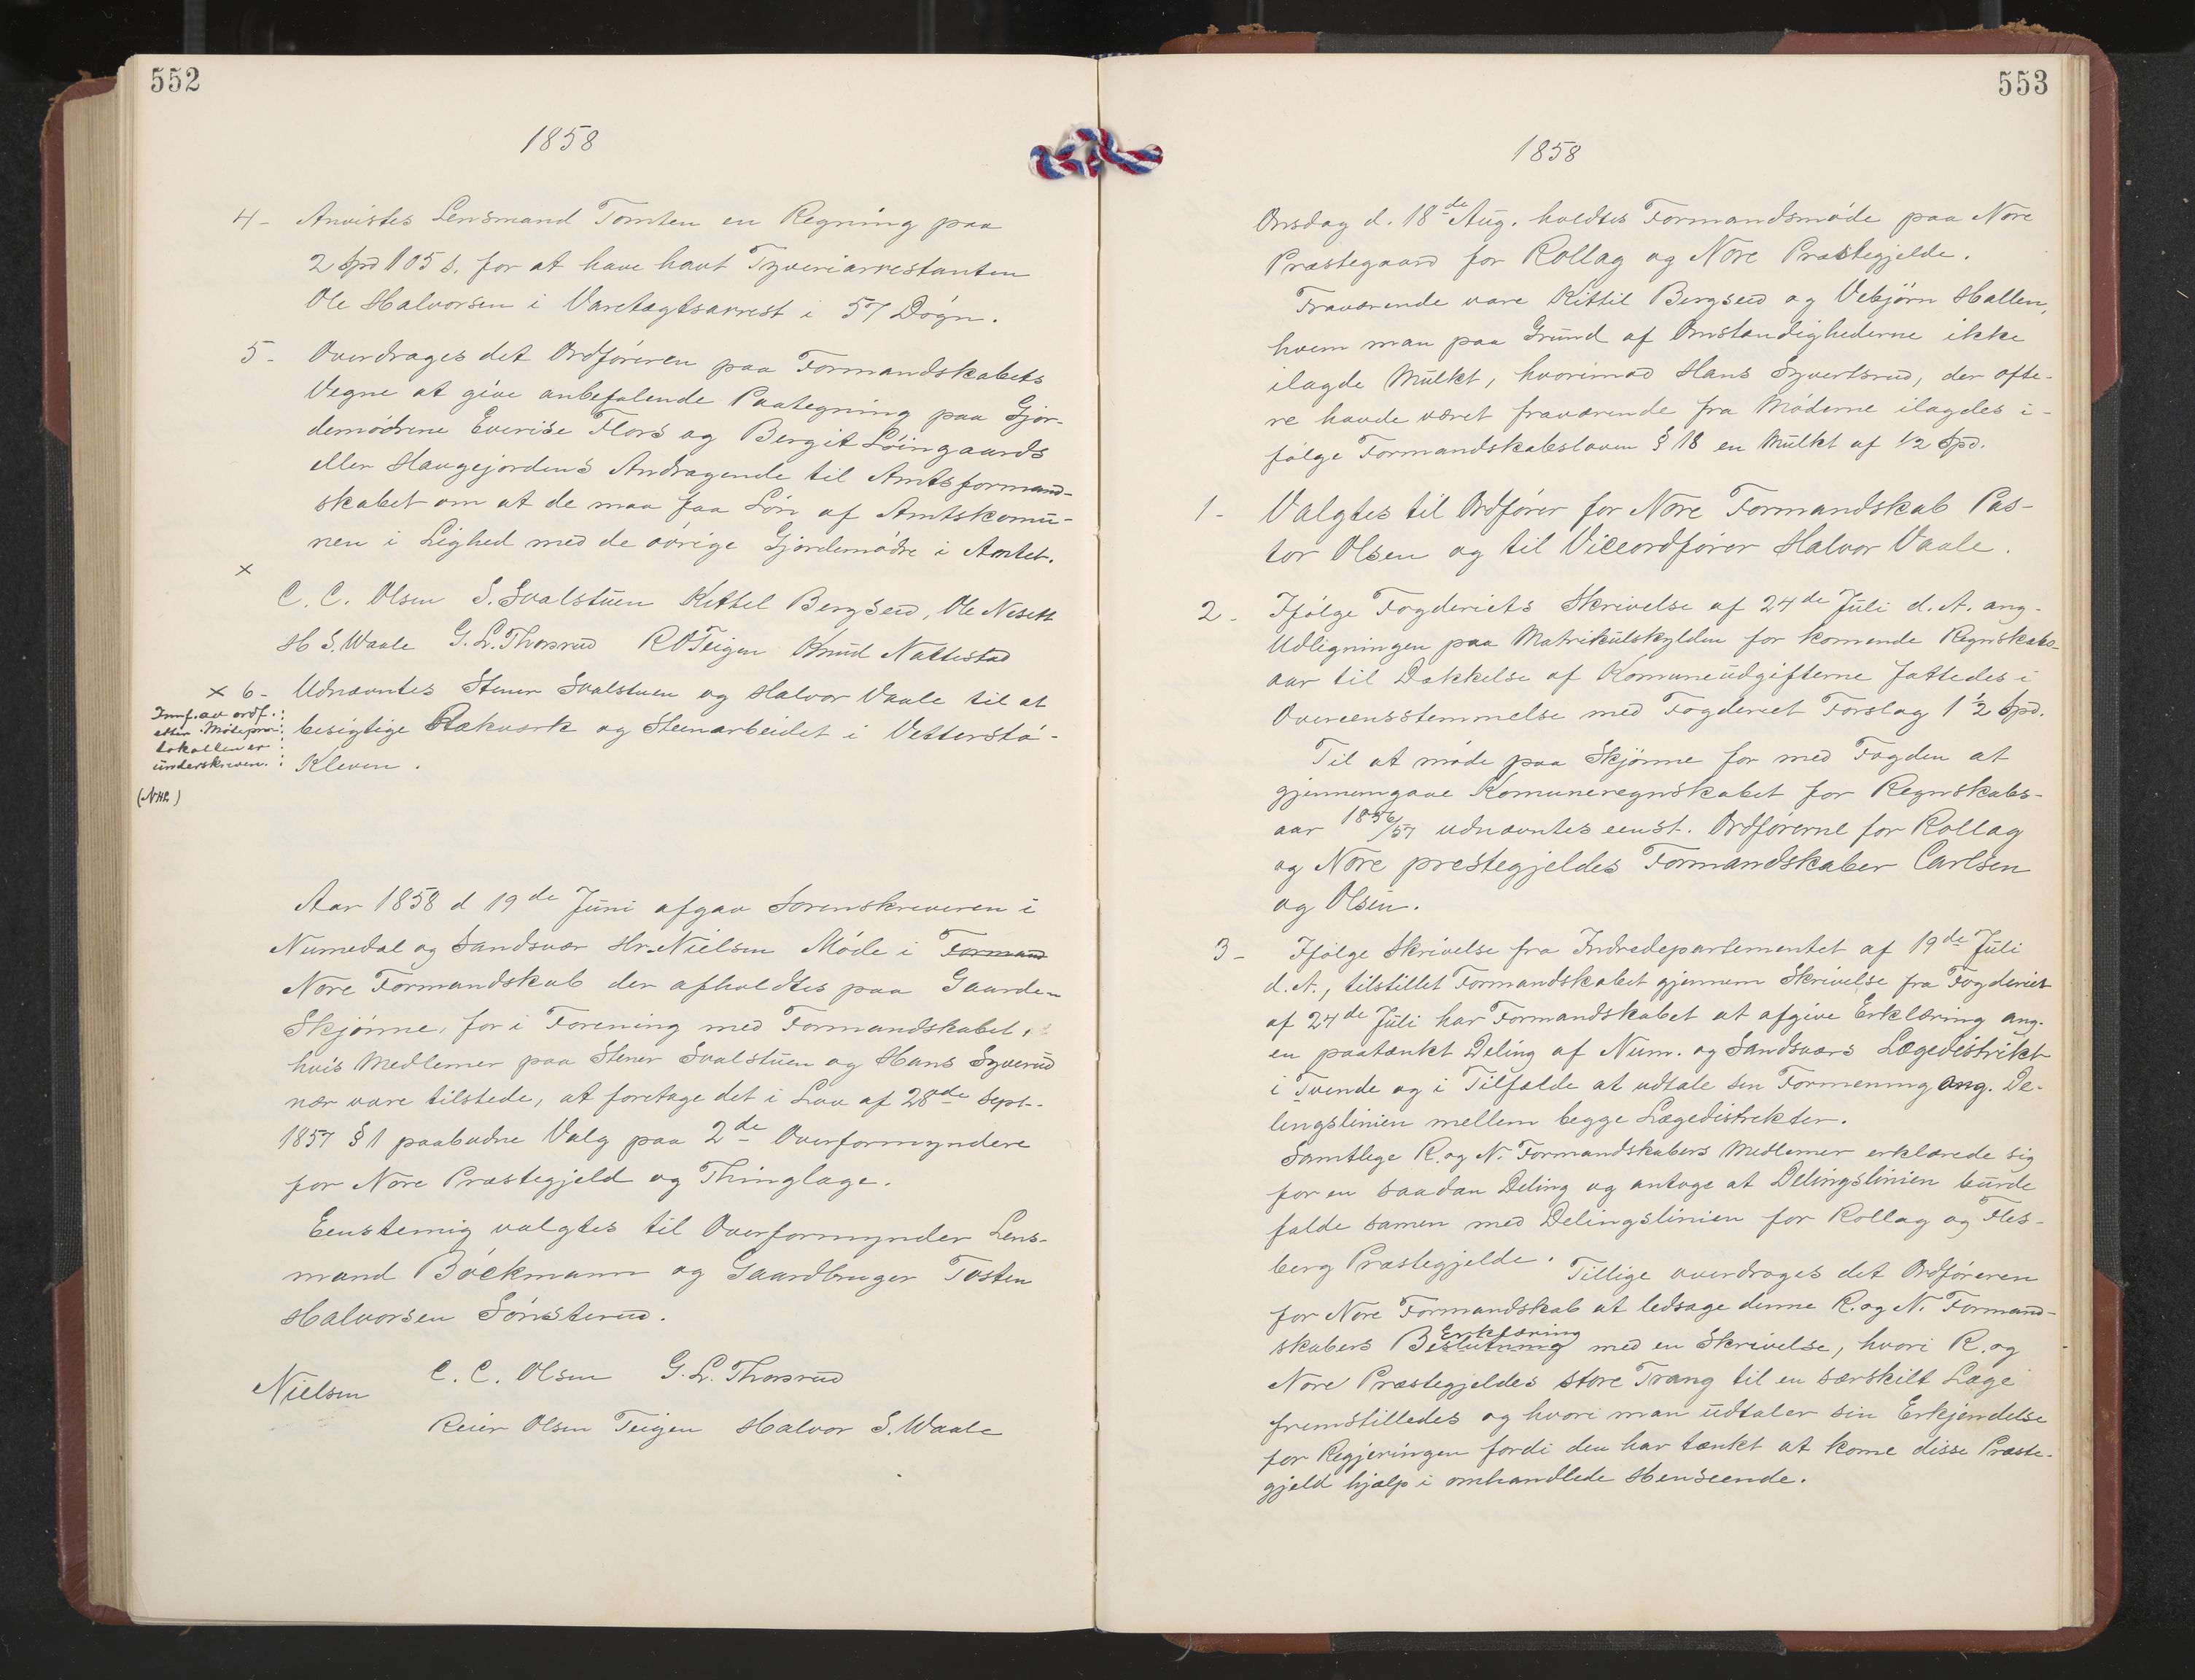 552
1858
4 - Anvistes Lensmand Tomten en Regning paa
2 Spd 105 s. for at have havt Tyveriarrestanten
Ole Halvorsen i Varetægtsarrest i 57 Døgn.
5 - Overdrages det Ordføreren paa Formandskabets
Vegne at give anbefalende Paategning paa Gjor-
demødrene Everise Flors og Bergit Löingaards
eller Haugejordens Andragende til Amtsformand-
skabet om at de maa faa Løn af Amtskomu-
nen i Lighed med de øvrige Gjordemødre i Amtet.
x
C. C. Olsen S. Svalstuen Kittel Bergserd, Ole Nesett
H S. Waale G. L. Thorsrud R O Teigen Knud Nattestad
x 6 - Udnævntes Stener Svalstuen og Halvor Vaale til at
besigtige Rækværk og Steenarbeidet i Vetterstö-
Kleven.
Innf. av ordf.
etter Mötepro-
tokollen er
underskreven.
(NHL)
Aar 1858 d 19de Juni afgav Sorenskriveren i
Numedal og Sandsvær Hr. Nielsen Møde i Formand
Nore Formandskab der afholdtes paa Gaarden
Skjønne, for i Forening med Formandskabet,
hvis Medlemer paa Stener Svalstuen og Hans Syverud
nær vare tilstede, at foretage det i Lov af 28de Sept.
1857 § 1 paabudne Valg paa 2de Overformyndere
for Nore Præstegjeld og Thinglage.
Eenstemig valgtes til Overformynder Lens-
mand Böckmann og Gaardbruger Tosten
Halvorsen Sönsterud.
Nielsen C. C. Olsen G. L. Thorsrud
Reier Olsen Teigen Halvor S. Waale
553
1858
Onsdag d. 18de Aug. holdtes Formandsmøde paa Nore
Præstegaard for Rollag og Nore Præstegjelde.
Fraværende vare Kittil Bergserd og Vebjörn Hallen,
hvem man paa Grund af Omstændighederne ikke
ilagde Mulkt, hvorimod Hans Syvertsrud, der ofte-
re havde været fraværende fra Møderne ilagdes i-
følge Formandskabsloven § 18 en Mulkt af 1/2 Spd.
1 - Valgtes til Ordfører for Nore Formandskab Pas-
tor Olsen og til Viceordfører Halvor Vaale.
2 - Ifølge Fogderiets Skrivelse af 24de Juli d. A. ang.
Udligningen paa Matrikulskylden for komende Regnskabs-
aar til Dækkelse af Komuneudgifterne fattedes i
Overeensstemmelse med Fogderiet Forslag 1 1/2 Spd.
Til at møde paa Skjønne for med Fogden at
gjennemgaae Komuneregnskabet for Regnskabs-
aar 1856/57 udnævntes eenst. Ordførerne for Rollag
og Nore prestegjeldes Formandskaber Carlsen
og Olsen.
3 - Ifølge Skrivelse fra Indredepartementet af 19de Juli
d. A., tilstillet Formandskabet gjennem Skrivelse fra Fogderiet
af 24de Juli har Formandskabet at afgive Erklæring ang.
en paatænkt Deling af Num. og Sandsværs Lægedistrikt
i Tvende og i Tilfælde at udtale sin Formening ang. De-
lingslinien mellem begge Lægedistrikter.
Samtlige R. og N. Formandskabers Medlemer erklærede sig
for en saadan Deling og antoge at Delingslinien burde
falde samen med Delingslinien for Rollag og Fles-
berg Præstegjelde. Tillige overdrages det Ordføreren
for Nore Formandskab at ledsage denne R. og N. Formand-
skabers Beslutning Erklæring med en Skrivelse, hvori R. og
Nore Præstegjeldes store Trang til en særskilt Læge
fremstilledes og hvori man udtaler sin Erkjendelse
for Regjeringen fordi den har tænkt at kome disse Præste-
gjeld hjælp i omhandlede Henseende.